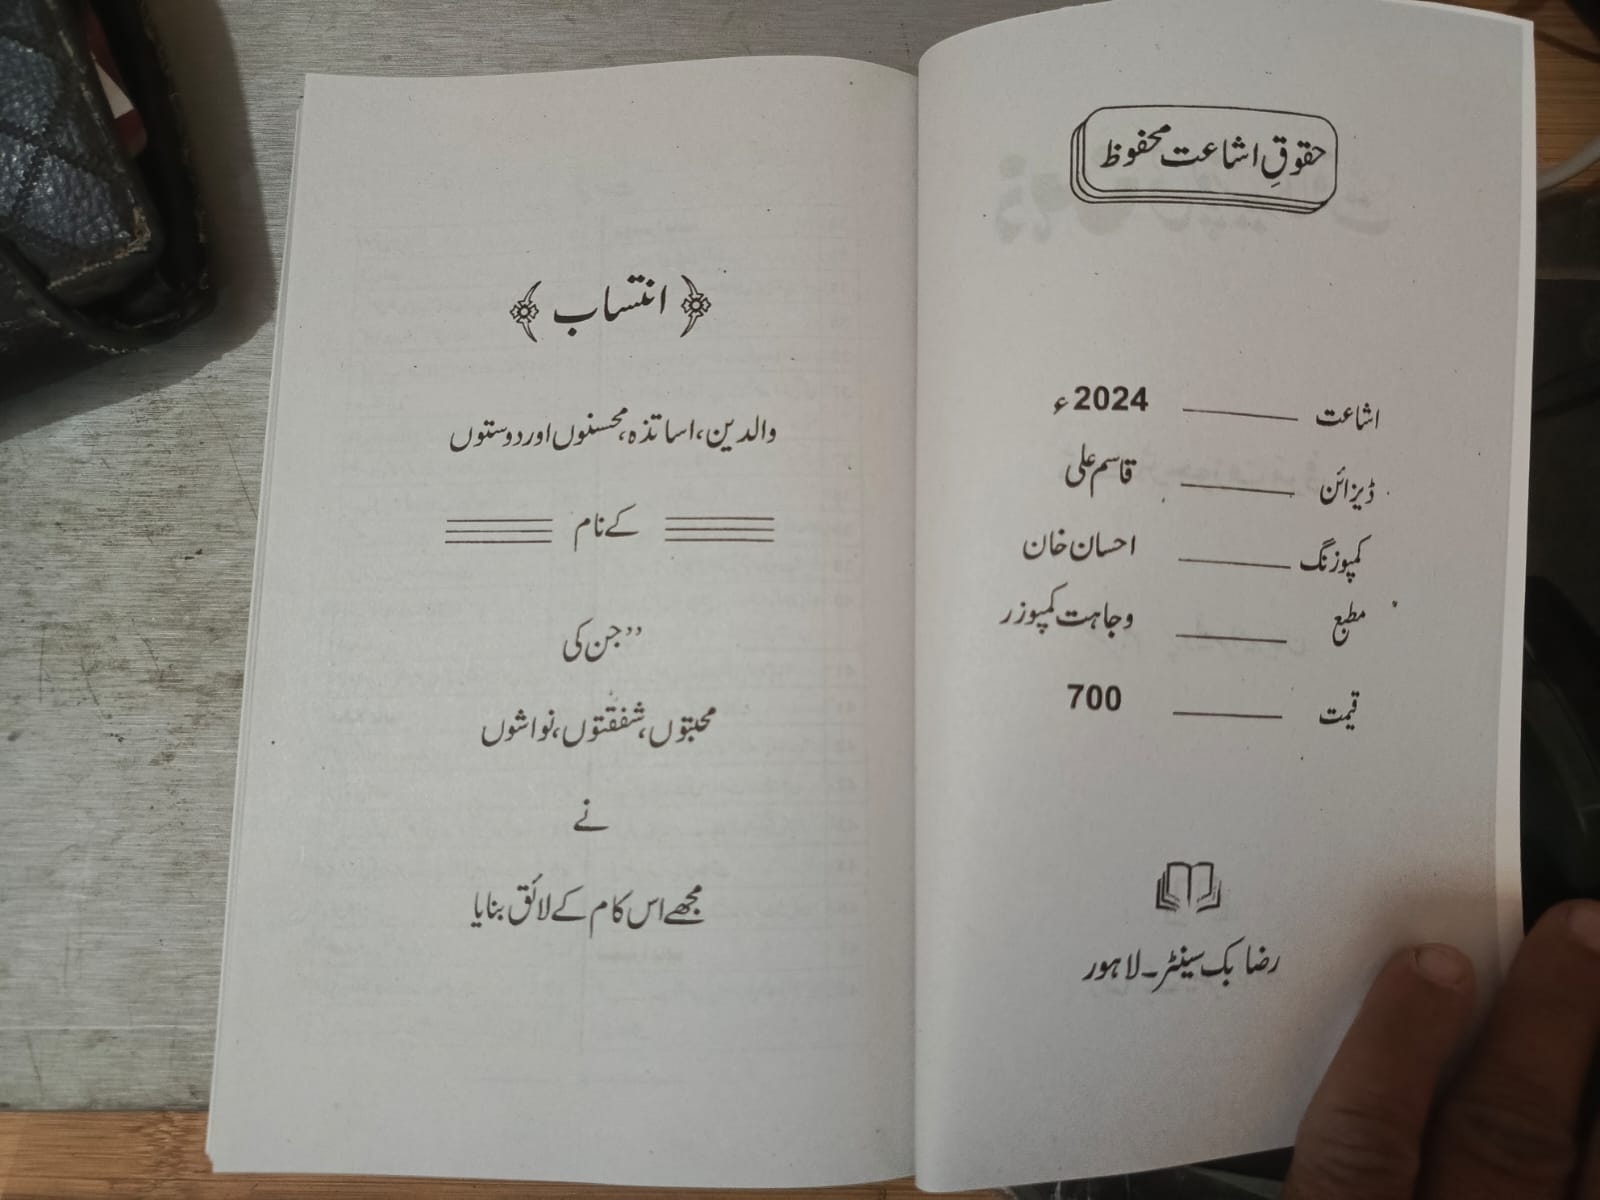 حقوقِ اشاعت محفوظ
اشاعت ــــــــــ 2024ء
ڈیزائن ــــــــــ قاسم علی
کمپوزنگ ــــــــــ احسان خان
مطبع ــــــــــ وجاہت کمپوزر
قیمت ــــــــــ 700
رضا بک سینٹر۔ لاہور
﴿ انتساب ﴾
والدین، اساتذہ، محسنوں اور دوستوں
کے نام
”جن کی
محبتوں، شفقتوں، نواشوں
نے
مجھے اس کام کے لائق بنایا